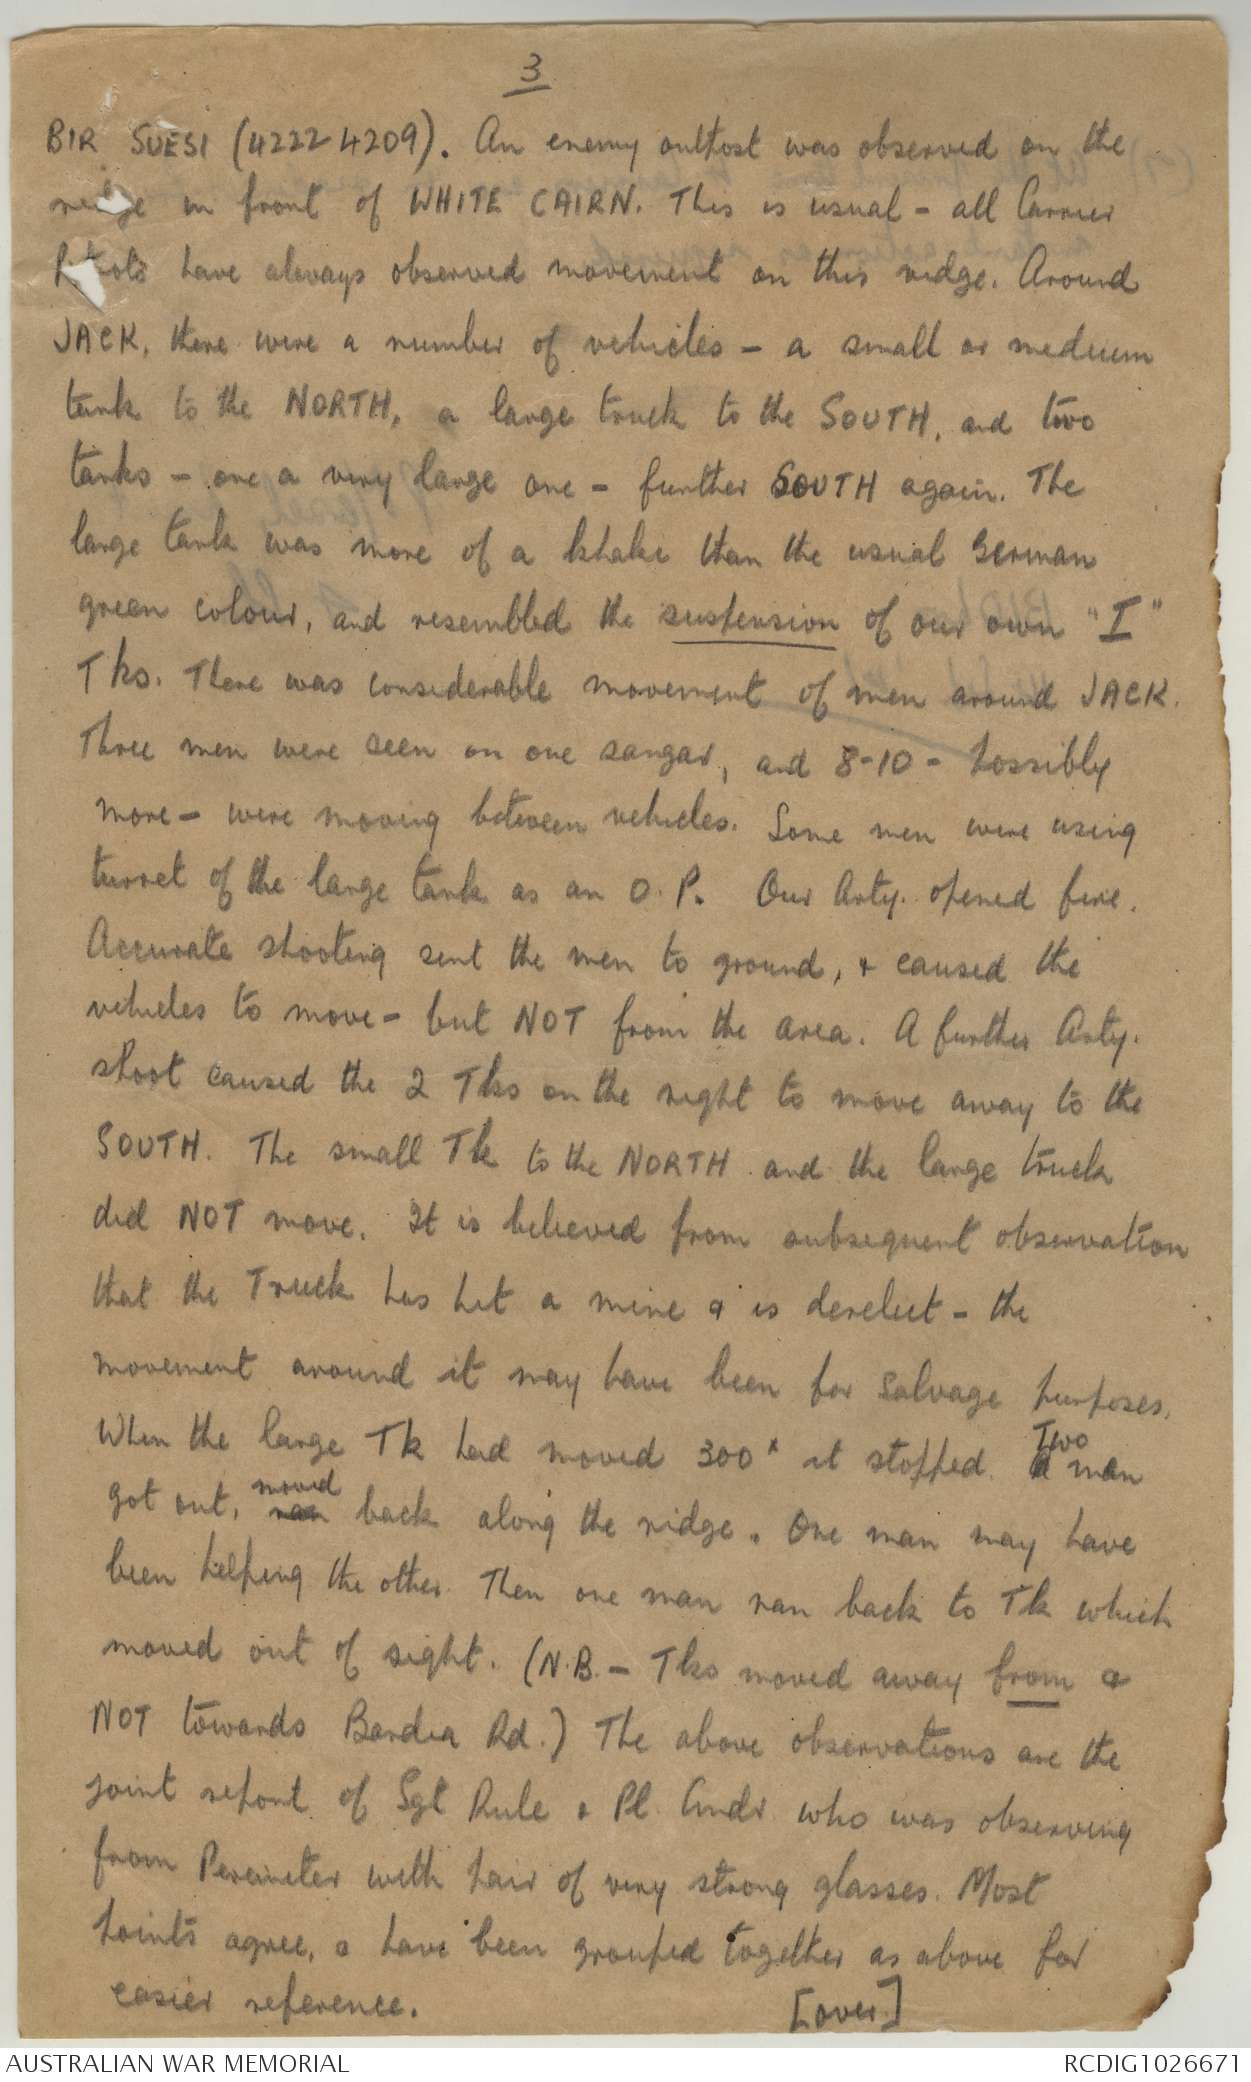 3
BIR SUESI (42224209). An enemy outpost was observed on the
ridge in front of WHITE CAIRN. This is usual - all Carrier
Patrols have always observed movement on this ridge. Around
JACK, there were a number of vehicles - a small or medium
tank to the NORTH, a large truck to the SOUTH, and two
tanks - one a very large one - further SOUTH again. The
large tank was more of a khaki than the usual German
green colour, and resembled the suspension of our own "I"
Tks. There was considerable movement of men around JACK.
Three men were seen on one sangar, and 8-10 - possibly
more - were moving between vehicles. Some men were using
turret of the large tank as an O.P. Our Arty. opened fire.
Accurate shooting sent the men to ground, & caused the
vehicles to move - but NOT from the area. A further Arty.
shoot caused the 2 Tks on the right to move away to the
SOUTH. The small Tk to the NORTH and the large truck
did NOT move. It is believed from subsequent observation
that the Truck has hit a mine & is derelict - the
movement around it may have been for salvage purposes.
When the large Tk had moved 300x it stopped. A Two men
got out, ran moved back along the ridge. One man may have
been helping the other. Then one man ran back to Tk which
moved out of sight. (N.B. - Tks moved away from &
NOT towards Bardia Rd.) The above observations are the
joint report of Sgt Rule & Pl. Comdr who was observing
from Perimeter with pair of very strong glasses. Most
points agree, & have been grouped together as above for
easier reference.
[over]
AUSTRALIAN WAR MEMORIAL
RCDIG1026671